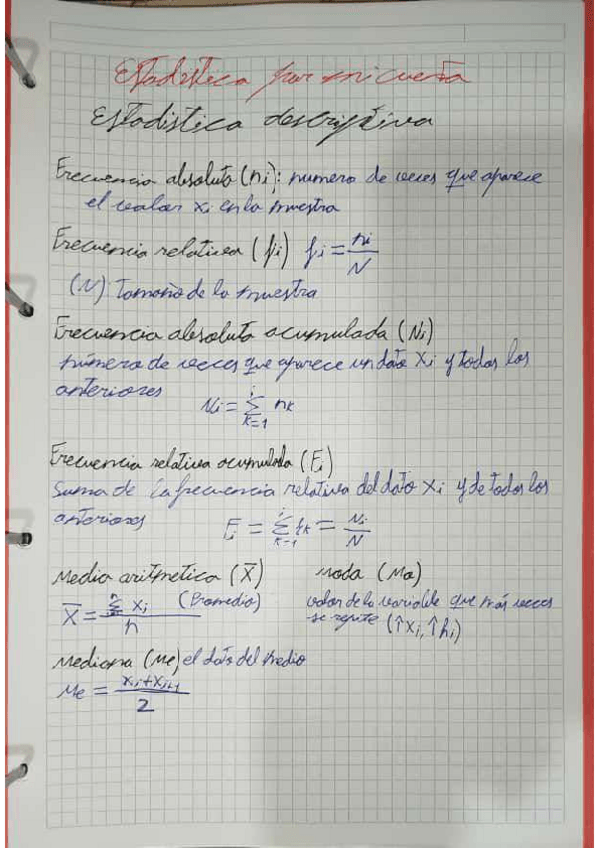 Estadistica por mi cuenta
Estadistica descriptiva
Frecuencia absoluta (ni): numero de veces que aparece
el valor xi en la muestra
Frecuencia relativa (fi) fi = ni/N
(N) Tamaño de la muestra
Frecuencia absoluta acumulada (Ni)
número de veces que aparece un dato xi y todos los
anteriores
Ni = i Σ k=1 nk
Frecuencia relativa acumulada (Fi)
Suma de la frecuencia relativa del dato xi y de todos los
anteriores
Fi = i Σ k=1 fk = Ni/N
Media aritmetica (X̄) Moda (Mo)
X̄ = Σ xi / n (Promedio) valor de la variable que más veces
se repite (↑xi, ↑ni)
Mediana (Me) el dato del medio
Me = xi+xi+1 / 2